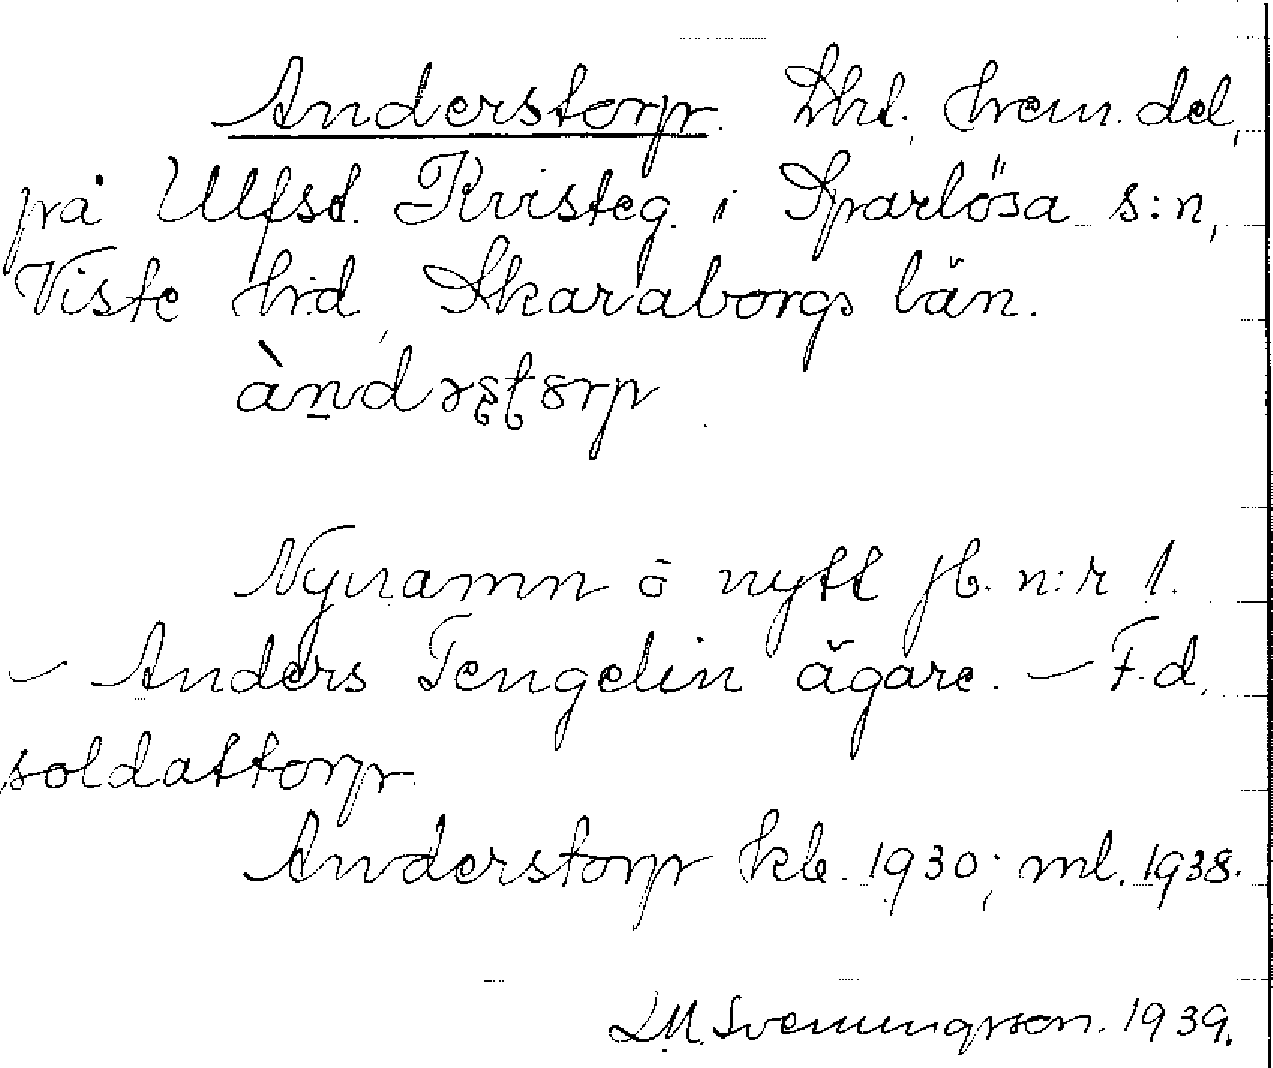 Anderstorp. Lht. hem. del,
på Ulfsd. Kvisteg. i Sparlösa s:n,
Viste hrd, Skaraborgs län.
àndrstorp.
Nynamn å nytt jb. n:r 1.
– Anders Tengelin ägare. – F.d.
soldattorp
Anderstorp kb. 1930; ml. 1938.
L.M. Svenungsson. 1939.